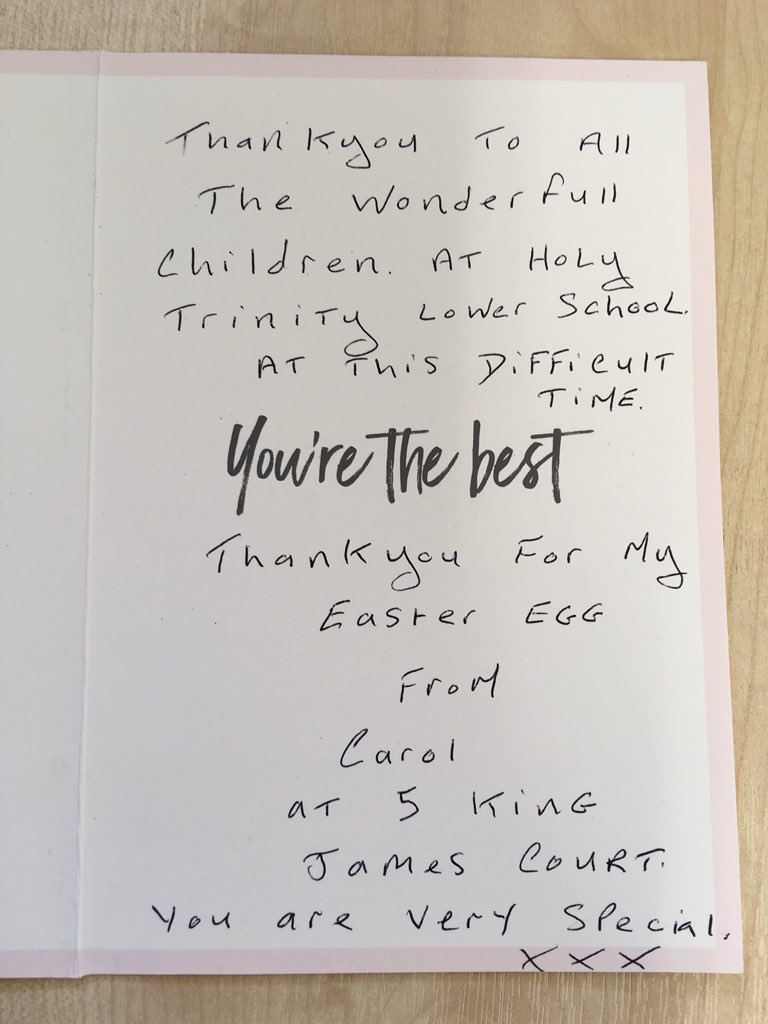 Thankyou To All
The Wonderfull
Children. AT HoLy
TriniTy Lower School.
AT This DiFFiculT
TiME.
You're the best
Thankyou For My
Easter EGG
FroM
Carol
aT 5 KinG
James COURT.
You are very Special.
XXX